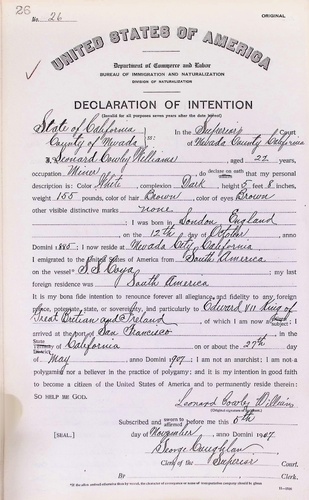 26
No. 26
ORIGINAL
UNITED STATES OF AMERICA
Department of Commerce and Labor
BUREAU OF IMMIGRATION AND NATURALIZATION
DIVISION OF NATURALIZATION
DECLARATION OF INTENTION
(Invalid for all purposes seven years after the date hereof)
State of California
County of Nevada ss: In the Superior Court
of Nevada County California
I, Leonard Cowley Williams, aged 22 years,
occupation Miner, do declare on oath that my personal
description is: Color White, complexion Dark, height 5 feet 8 inches,
weight 155 pounds, color of hair Brown, color of eyes Brown
other visible distinctive marks none
I was born in London, England
on the 12th day of October, anno
Domini 1885; I now reside at Nevada City, California
I emigrated to the United States of America from South America
on the vessel S.S. Coya; my last
foreign residence was South America
It is my bona fide intention to renounce forever all allegiance and fidelity to any foreign
prince, potentate, state, or sovereignty, and particularly to Edward VII King of
Great Britian and Ireland, of which I am now a subject; I
arrived at the port of San Francisco, in the
State of California on or about the 27th day
of May, anno Domini 1907; I am not an anarchist; I am not a
polygamist nor a believer in the practice of polygamy; and it is my intention in good faith
to become a citizen of the United States of America and to permanently reside therein:
SO HELP ME GOD.
Leonard Cowley Williams
(Original signature of declarant)
Subscribed and sworn to affirmed before me this 5th
[SEAL.] day of November, anno Domini 1907
George Coughlan
Clerk of the Superior Court.
By , Clerk.